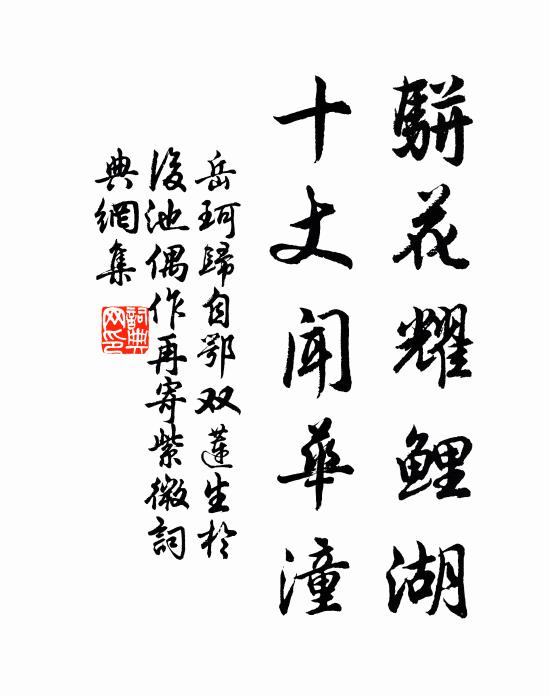 駢花耀鯉湖
十丈聞華潼
岳珂歸自鄂双蓮生於
後池偶作再寄紫微詞
典網集
詞典网印